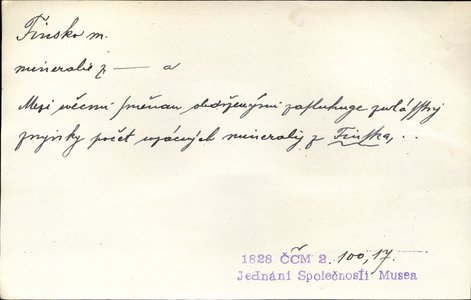 Finsko m.
mineralie z — a
Mezi věcmi směnau obdrženými zasluhuge zwláfftnj
zmjnky počet wzácných mineralij z Finska, . .
1828 ČČM 2. 100, 17.
Jednání Společnosti Musea